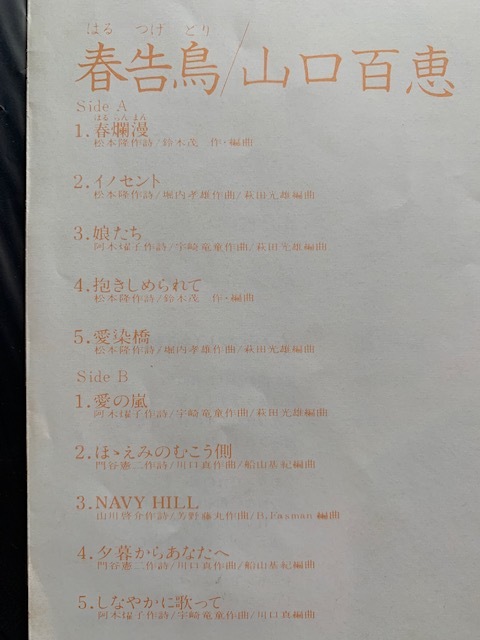 はる つげ どり
春告鳥/山口百恵
Side A
はるらんまん
1.春爛漫
松本隆作詩/鈴木茂 作・編曲
2.イノセント
松本隆作詩/堀内孝雄作曲/萩田光雄編曲
3.娘たち
阿木燿子作詩/宇崎竜童作曲/萩田光雄編曲
4.抱きしめられて
松本隆作詩/鈴木茂 作・編曲
5.愛染橋
松本隆作詩/堀内孝雄作曲/萩田光雄編曲
Side B
1.愛の嵐
阿木燿子作詩/宇崎竜童作曲/萩田光雄編曲
2.ほゝえみのむこう側
門谷憲二作詩/川口真作曲/船山基紀編曲
3.NAVY HILL
山川啓介作詩/芳野藤丸作曲/B.Fasman 編曲
4.夕暮からあなたへ
門谷憲二作詩/川口真作曲/船山基紀編曲
5.しなやかに歌って
阿木燿子作詩/宇崎竜童作曲/川口真編曲